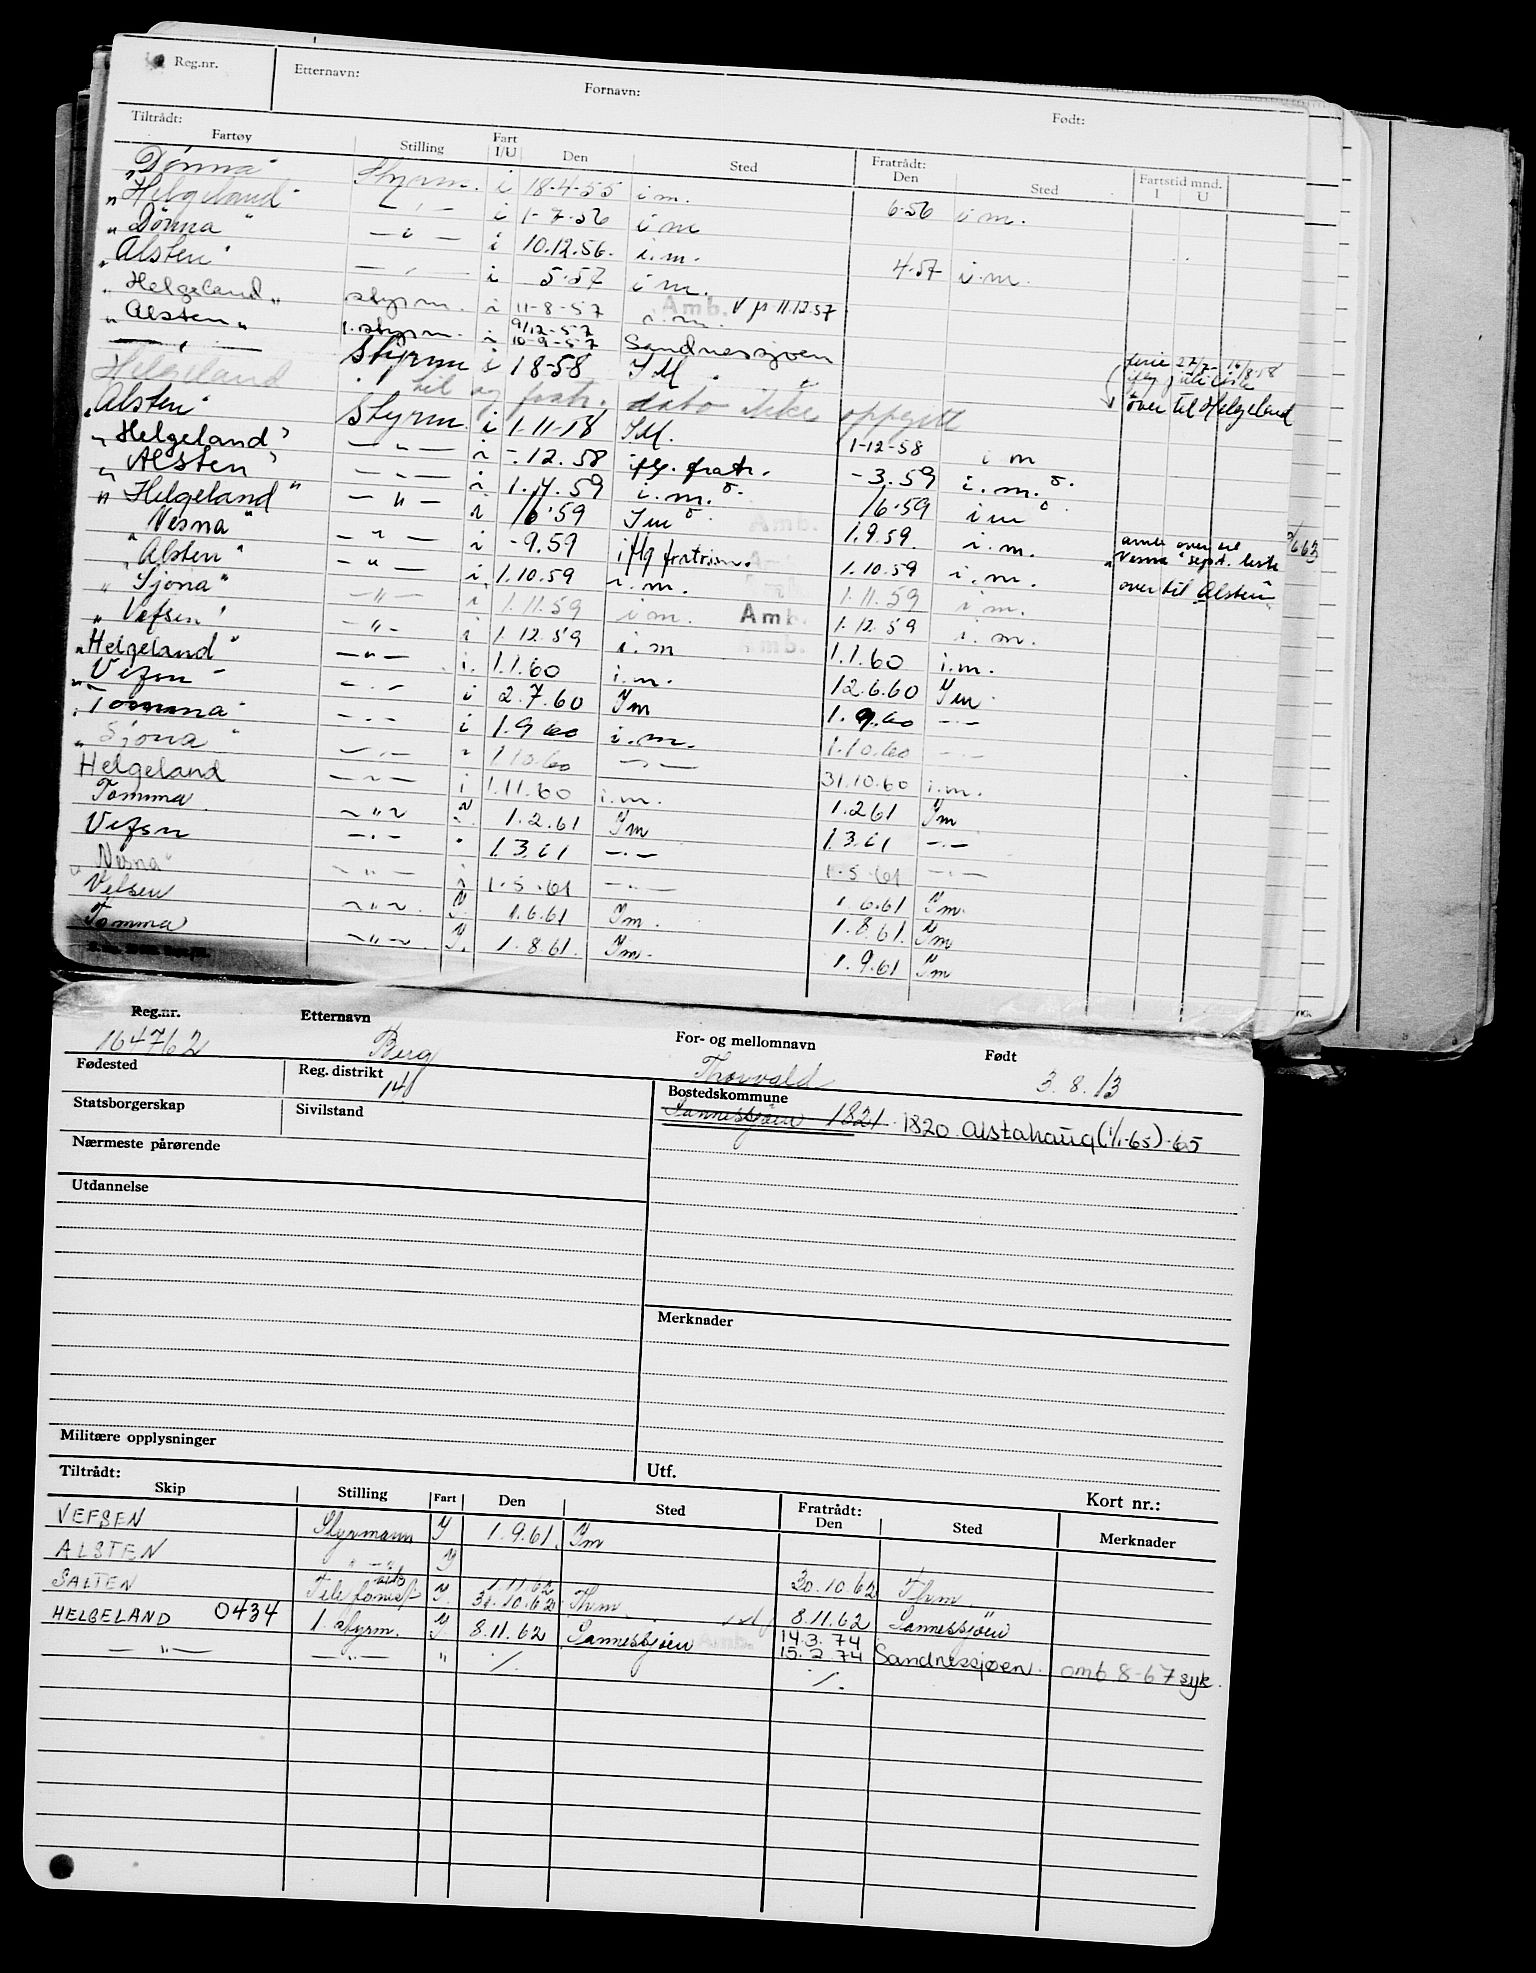 Reg.nr. Etternavn: Fornavn: Født:
Tiltrådt: Fratrådt: Fartstid mnd.
Fartøy Stilling Fart I/U Den Sted Den Sted I U
"Dønna" Styrm. i 18-4-55 i m. 6-56 i m.
"Helgeland" — " — i 1-7-56 i m
"Dönna" — " — i 10.12.56. i.m. 4-57 i.m
"Alsten" — " — i 5-57 i m.
"Helgeland" styrm. i 11-8-57 i.m. Amb. 11.12.57
"Alsten" 1. styrm. i 9/12-57 10-9-57 Sandnessjøen
— " — Styrm i 1 8-58 I M. ferie 27/7- 16/8 58
Helgeland til og fratr. dato ikke oppgitt iflg juli liste
"Alsten" Styrm i 1.11.18 I M. 1-12-58 i m over til Helgeland
"Helgeland" — " — i -.12.58 iflg. fratr. -3.59 i.m.
"Alsten" — " — i 1.4.59 i.m. 1/6 59 i m
"Helgeland" — " — i 1/6 59 I m Amb. 1.9.59. i.m.
"Nesna" — " — i -9.59 iflg fratrim. 1.10.59 i.m. over til "Nesna" sept. liste
"Alsten" — " — i 1.10.59 i.m. 1.11.59 i m. over til Alsten
"Sjona" — " — i 1.11.59 i m. Amb. 1.12.59 i.m.
"Vefsen" — " — i 1.12.59 i.m Amb. 1.1.60 i.m.
"Helgeland" — " — i. 1.1.60 i.m. 12.6.60 I m
"Vefsn" — " — i 2.7.60 I m 1.9.60 — " —
"Tomma" — " — i 1.9 60 i.m. 1.10.60 — " —
"Sjona" — " — i 1.10.60 — " — 31.10.60 i.m.
Helgeland — " — i 1.11.60 i.m. 1.2.61 I m
Tomma — " — 1.2.61 I m 1.3.61 — " —
Vefsn — " — " 1.3.61 — " — 1.5.61 — " —
"Nesna" — " — i 1.5.61 — " — 1.6.61 I m.
Vefsen — " — Y. 1.6.61 I m. 1.8.61. I m
Tomma — " — Y. 1.8.61. I m. 1.9.61 I m
Reg.nr. Etternavn For- og mellomnavn Født
164762 Berg Thorvald 3.8.13
Fødested Reg. distrikt 141 Bostedskommune
Statsborgerskap Sivilstand Sannessjöen 1821. 1820 Alstahaug (1/1-65)-65
Nærmeste pårørende
Utdannelse
Merknader
Militære opplysninger
Utf.
Kort nr.:
Tiltrådt: Fratrådt:
Skip Stilling Fart Den Sted Den Sted Merknader
VEFSEN Styrmann Y 1.9.61. I m
ALSTEN " — " Y 30.10.62 Thrm.
SALTEN Telefonist Y. 1.11.62 31.10.62 Thrm 8.11.62 Sannessjöen
HELGELAND 0434 1. styrm. Y. 8.11.62 Sannessjöen Amb. 14.3.74 15.2 74 Sandnessjøen. amb 8-67 syk.
— " — — " — " ./. ./.